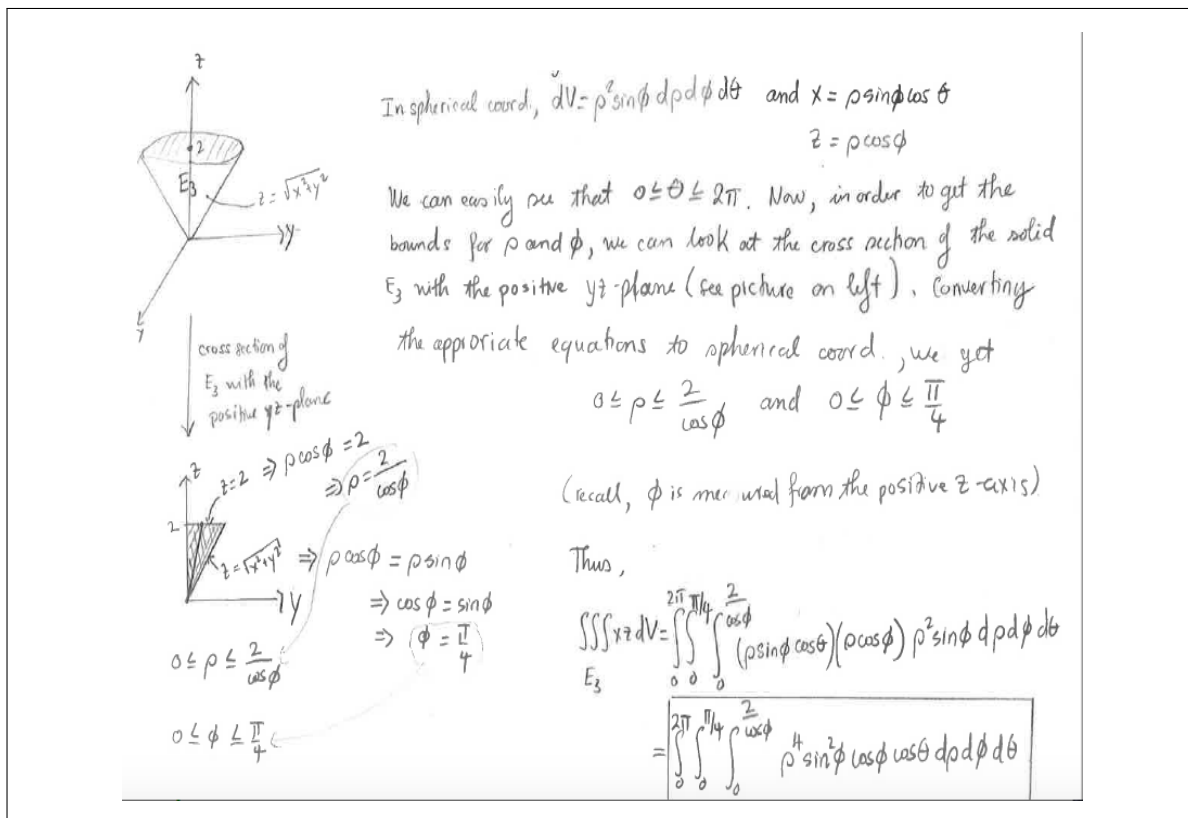 z
2
E₃
z = √x²+y²
y
y
cross section of
E₃ with the
positive yz-plane
z
z=2 ⇒ ρcosϕ = 2
⇒ ρ = 2/cosϕ
2
z = √x²+y² ⇒ ρcosϕ = ρsinϕ
y
⇒ cosϕ = sinϕ
⇒ ϕ = π/4
0 ≤ ρ ≤ 2/cosϕ
0 ≤ ϕ ≤ π/4
In spherical coord., dV = ρ²sinϕ dρdϕdθ and x = ρsinϕcosθ
z = ρcosϕ
We can easily see that 0 ≤ θ ≤ 2π. Now, in order to get the
bounds for ρ and ϕ, we can look at the cross section of the solid
E₃ with the positive yz-plane (see picture on left). Converting
the approriate equations to spherical coord., we get
0 ≤ ρ ≤ 2/cosϕ and 0 ≤ ϕ ≤ π/4
(recall, ϕ is measured from the positive z-axis)
Thus,
∭_E₃ xz dV = ∫₀^2π ∫₀^π/4 ∫₀^2/cosϕ (ρsinϕcosθ)(ρcosϕ) ρ²sinϕ dρdϕdθ
= ∫₀^2π ∫₀^π/4 ∫₀^2/cosϕ ρ⁴sin²ϕcosϕcosθ dρdϕdθ